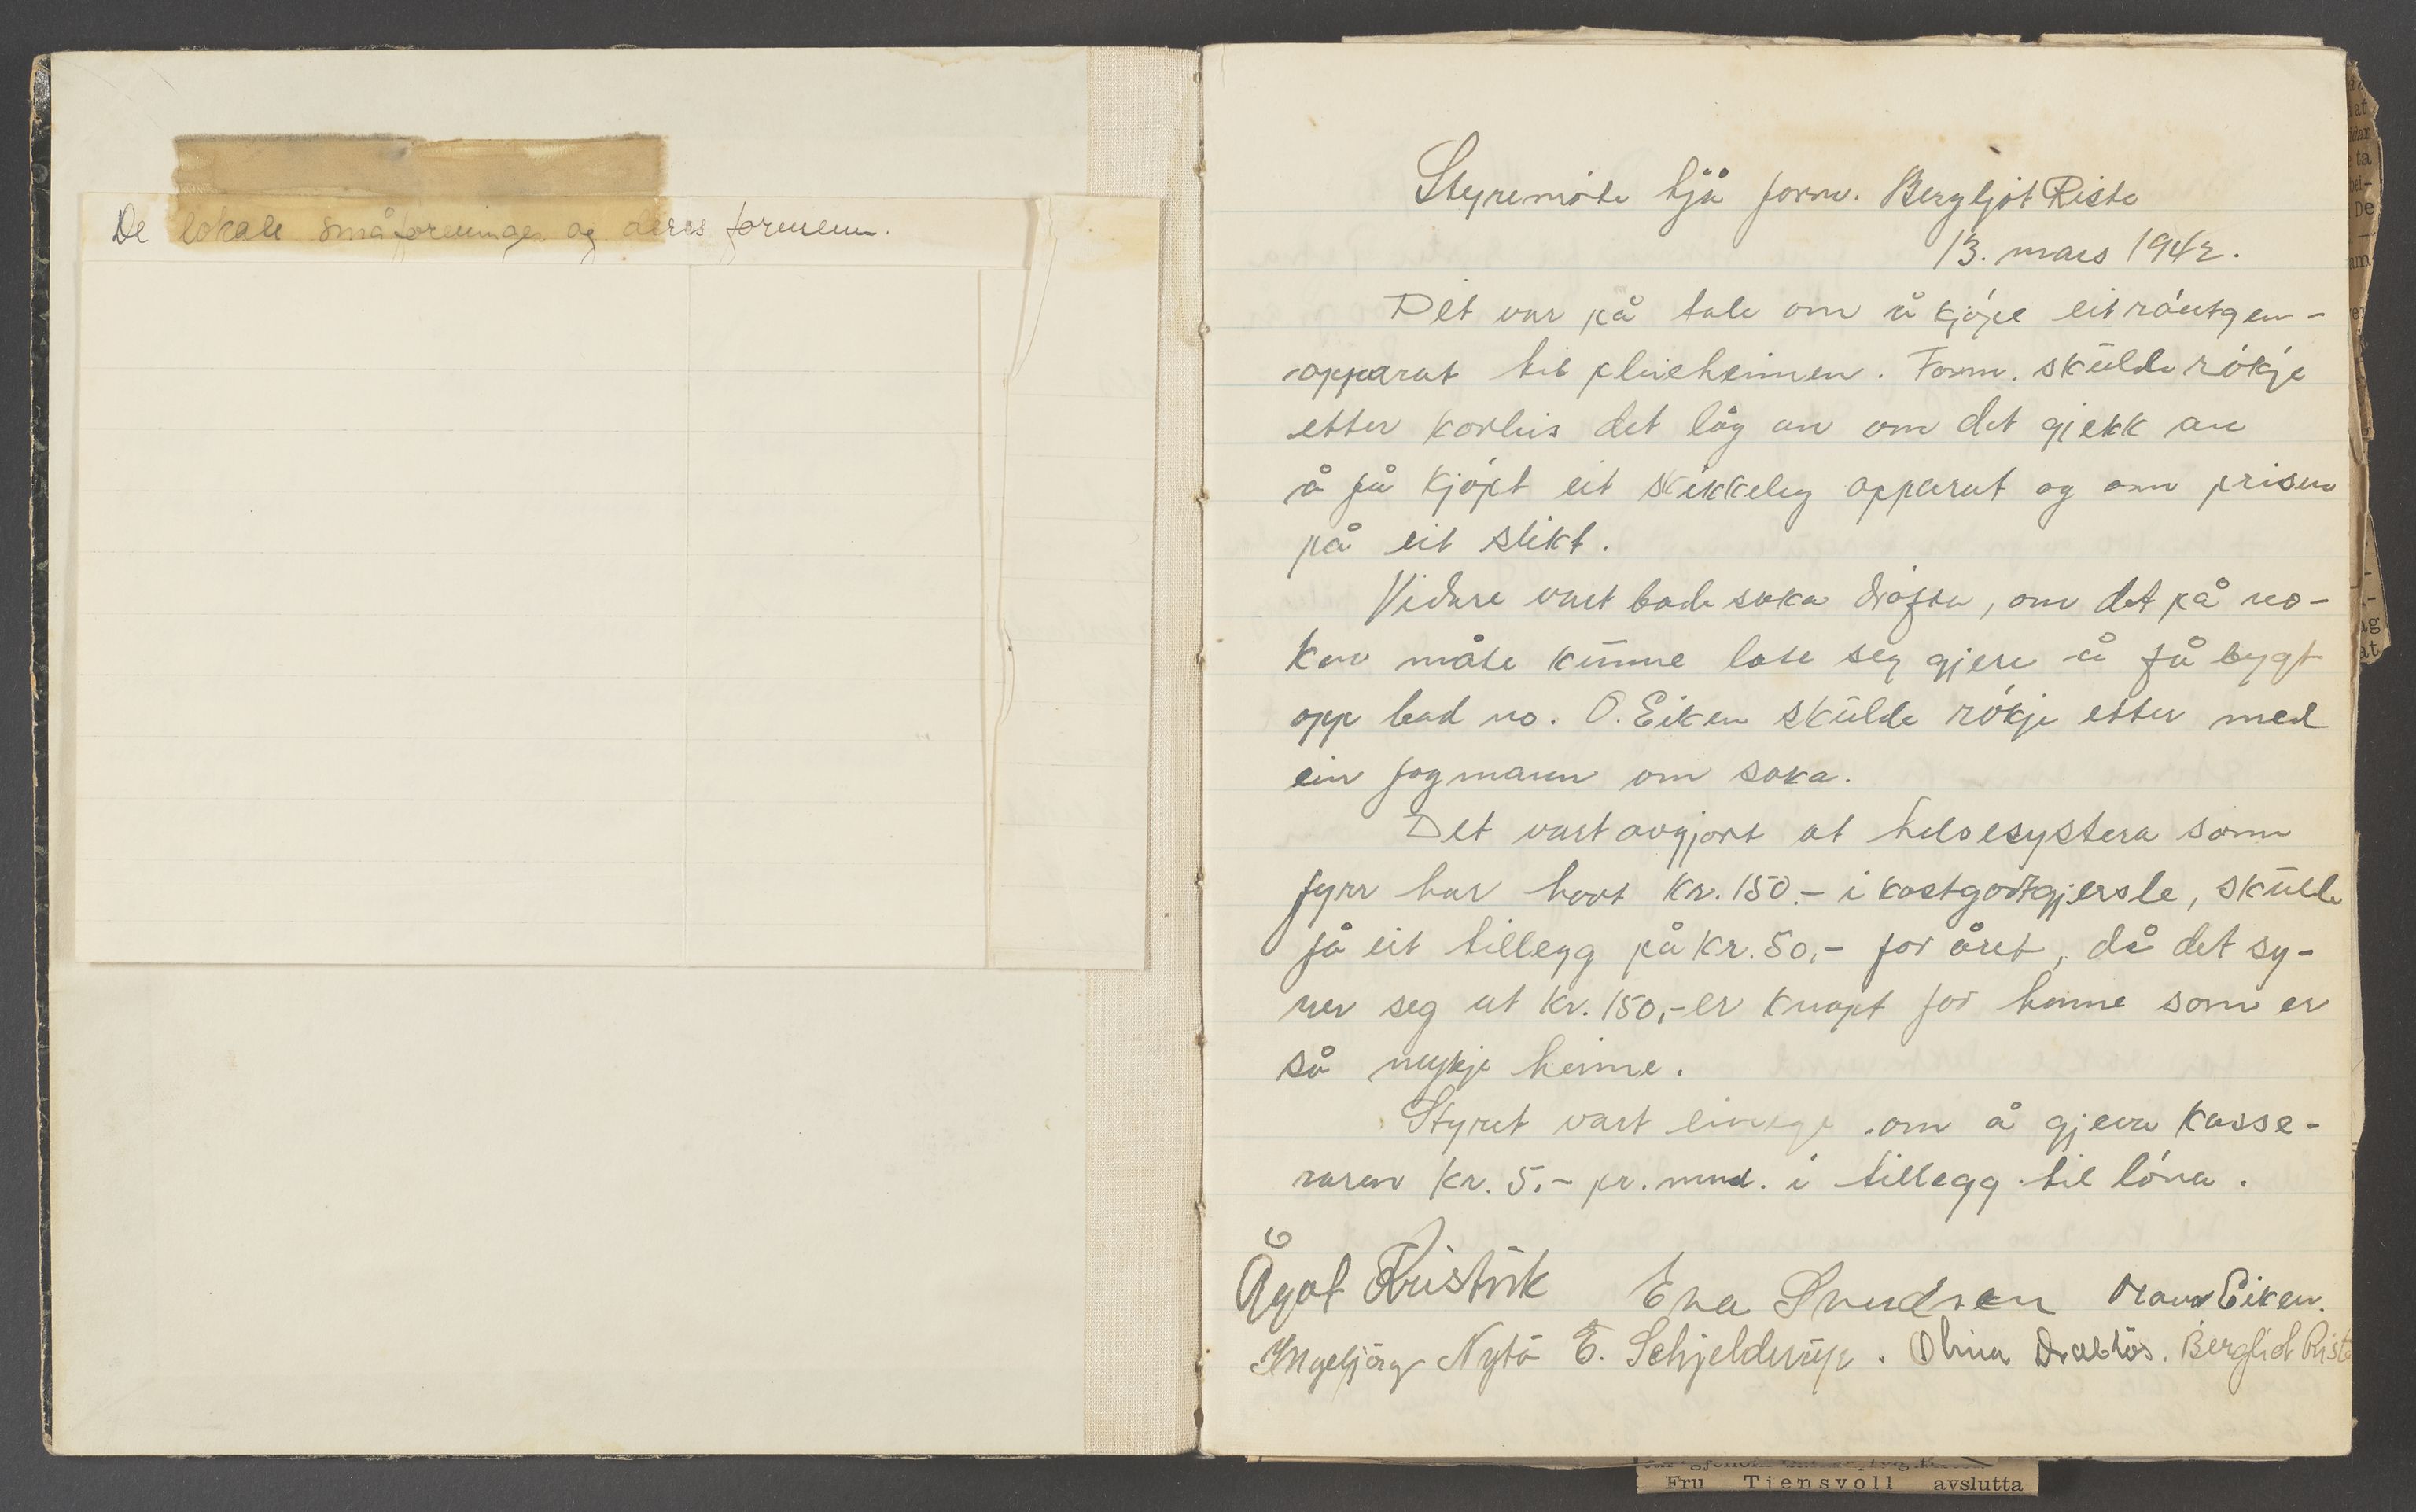 De lokale småforeninger og deres formenn.
Styremöte hjå form. Bergljot Riste
13. mars 1942.
Det var på tale om å kjópe eit röntgen-
apparat til pleieheimen. Form. skulde rökje
etter korleis det låg an om det gjekk an
å få kjöpt eit skikkeleg apparat og om prisen
på eit slikt.
Vidare vart badesaka dröfta, om det på no-
kon måte kunne late seg gjere å få bygt
opp bad no. O. Eiken skulde rökje etter med
ein fagmann om saka.
Det vart avgjort at helsesystera som
fyrr har havt kr. 150.- i kostgodtgjersle, skulle
få eit tillegg på kr. 50,- for året, då det sy-
ner seg at kr. 150,- er knapt for henne som er
så mykje heime.
Styret vart einige om å gjeva kasse-
raren kr. 5.- pr. mnd. i tillegg til löna.
Ågot Eva Svendsen Olav Eiken.
Ingebjörg Nytö E. Schjelderup. Olina Drabløs. Bergliot Riste
at
dar
ta
De
am
ag
at
Fru Tjensvoll avslutta